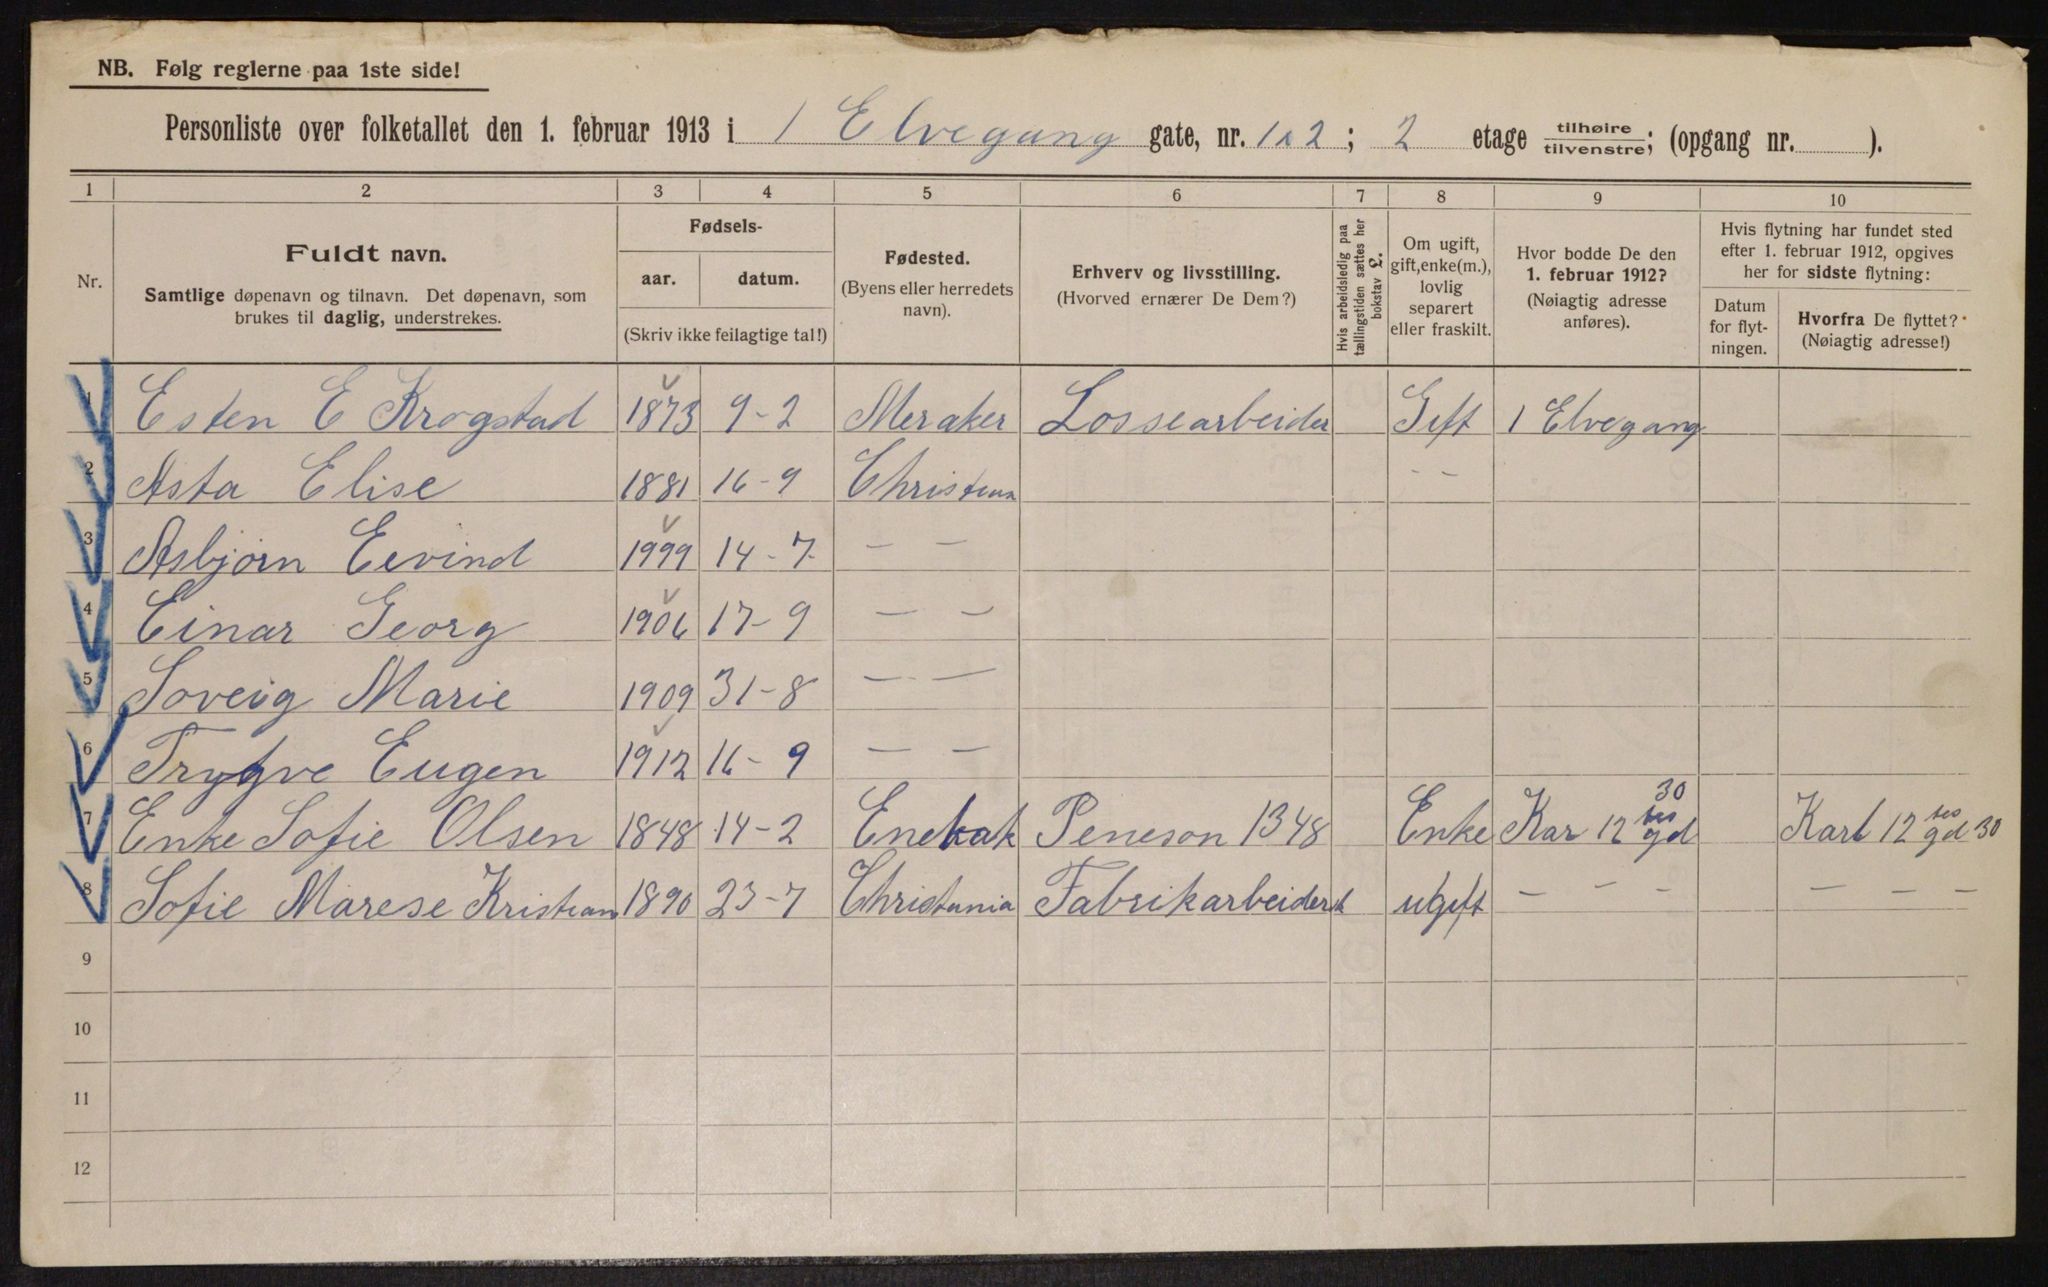 NB. Følg reglerne paa 1ste side!
Personliste over folketallet den 1. februar 1913 i 1 Elvegang gate, nr. 1 2; 2 etage tilhøire tilvenstre; (opgang nr. ).
1 2 3 4 5 6 7 8 9 10
Nr.
Fuldt navn.
Samtlige døpenavn og tilnavn. Det døpenavn, som
brukes til daglig, understrekes.
Fødsels-
aar. datum.
(Skriv ikke feilagtige tal!)
Fødested.
(Byens eller herredets
navn).
Erhverv og livsstilling.
(Hvorved ernærer De Dem?)
Hvis arbeidsledig paa
tællingstiden sættes her
bokstav L.
Om ugift,
gift, enke(m.),
lovlig
separert
eller fraskilt.
Hvor bodde De den
1. februar 1912?
(Nøiagtig adresse
anføres).
Hvis flytning har fundet sted
efter 1. februar 1912, opgives
her for sidste flytning:
Datum
for flyt-
ningen.
Hvorfra De flyttet?
(Nøiagtig adresse!)
1 Esten E Krogstad 1873 9-2 Meraker Lossearbeider Gift 1 Elvegang
2 Asta Elise 1881 16-9 Christiana - -
3 Asbjørn Eevind 1999 14-7 - -
4 Einar Georg 1906 17-9 - -
5 Soveig Marie 1909 31-8 - -
6 Trygve Eugen 1912 16-9 - -
7 Enke Sofie Olsen 1848 14-2 Enebak Peneson 1348 Enke Kar 12 tes gd 30 Karl 12 tes gd 30
8 Sofie Marese Kristian 1890 23-7 Christania Fabrikarbeidersk ugift - - - - - -
9
10
11
12